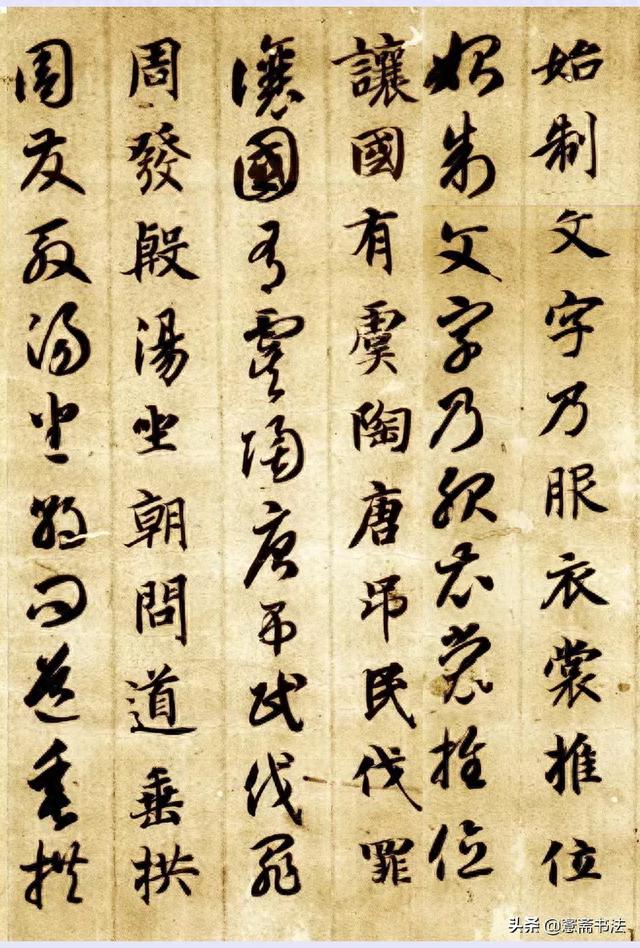 始制文字乃服衣裳推位
始制文字乃服衣裳推位
讓國有虞陶唐吊民伐罪
讓國有虞陶唐吊民伐罪
周發殷湯坐朝問道垂拱
周發殷湯坐朝問道垂拱
头条 @憲斋书法